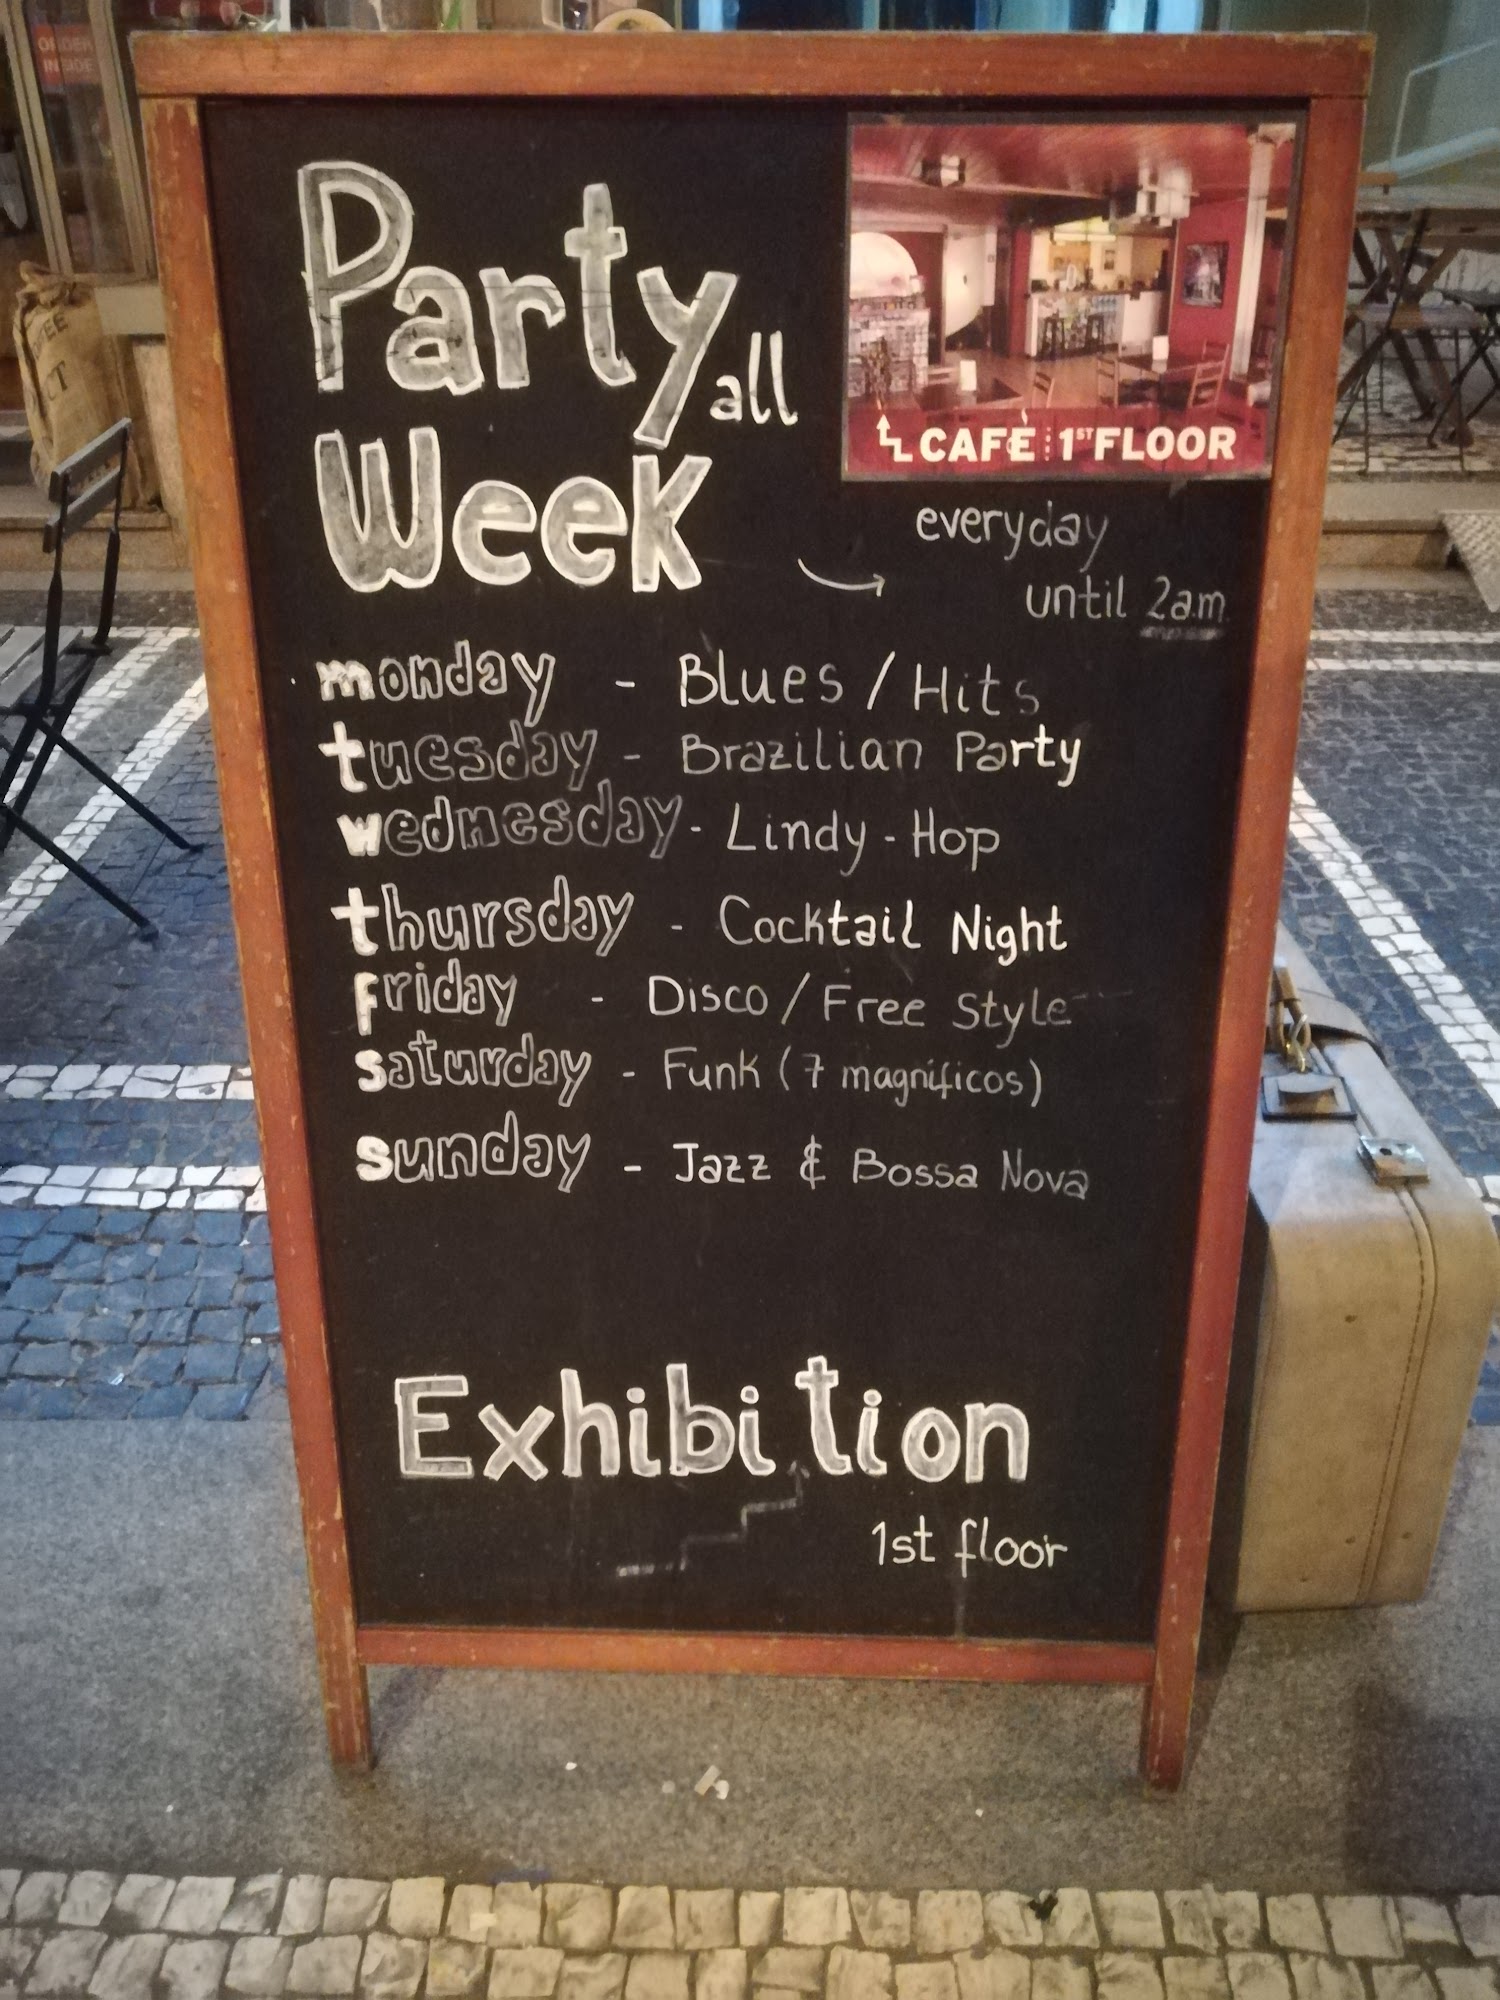 Party all
Week
CAFÈ 1ST FLOOR
everyday
until 2a.m.
monday - Blues / Hits
tuesday - Brazilian Party
wednesday - Lindy-Hop
thursday - Cocktail Night
friday - Disco / Free Style
saturday - Funk (7 magníficos)
sunday - Jazz & Bossa Nova
Exhibition
1st floor
ORDER
INSIDE